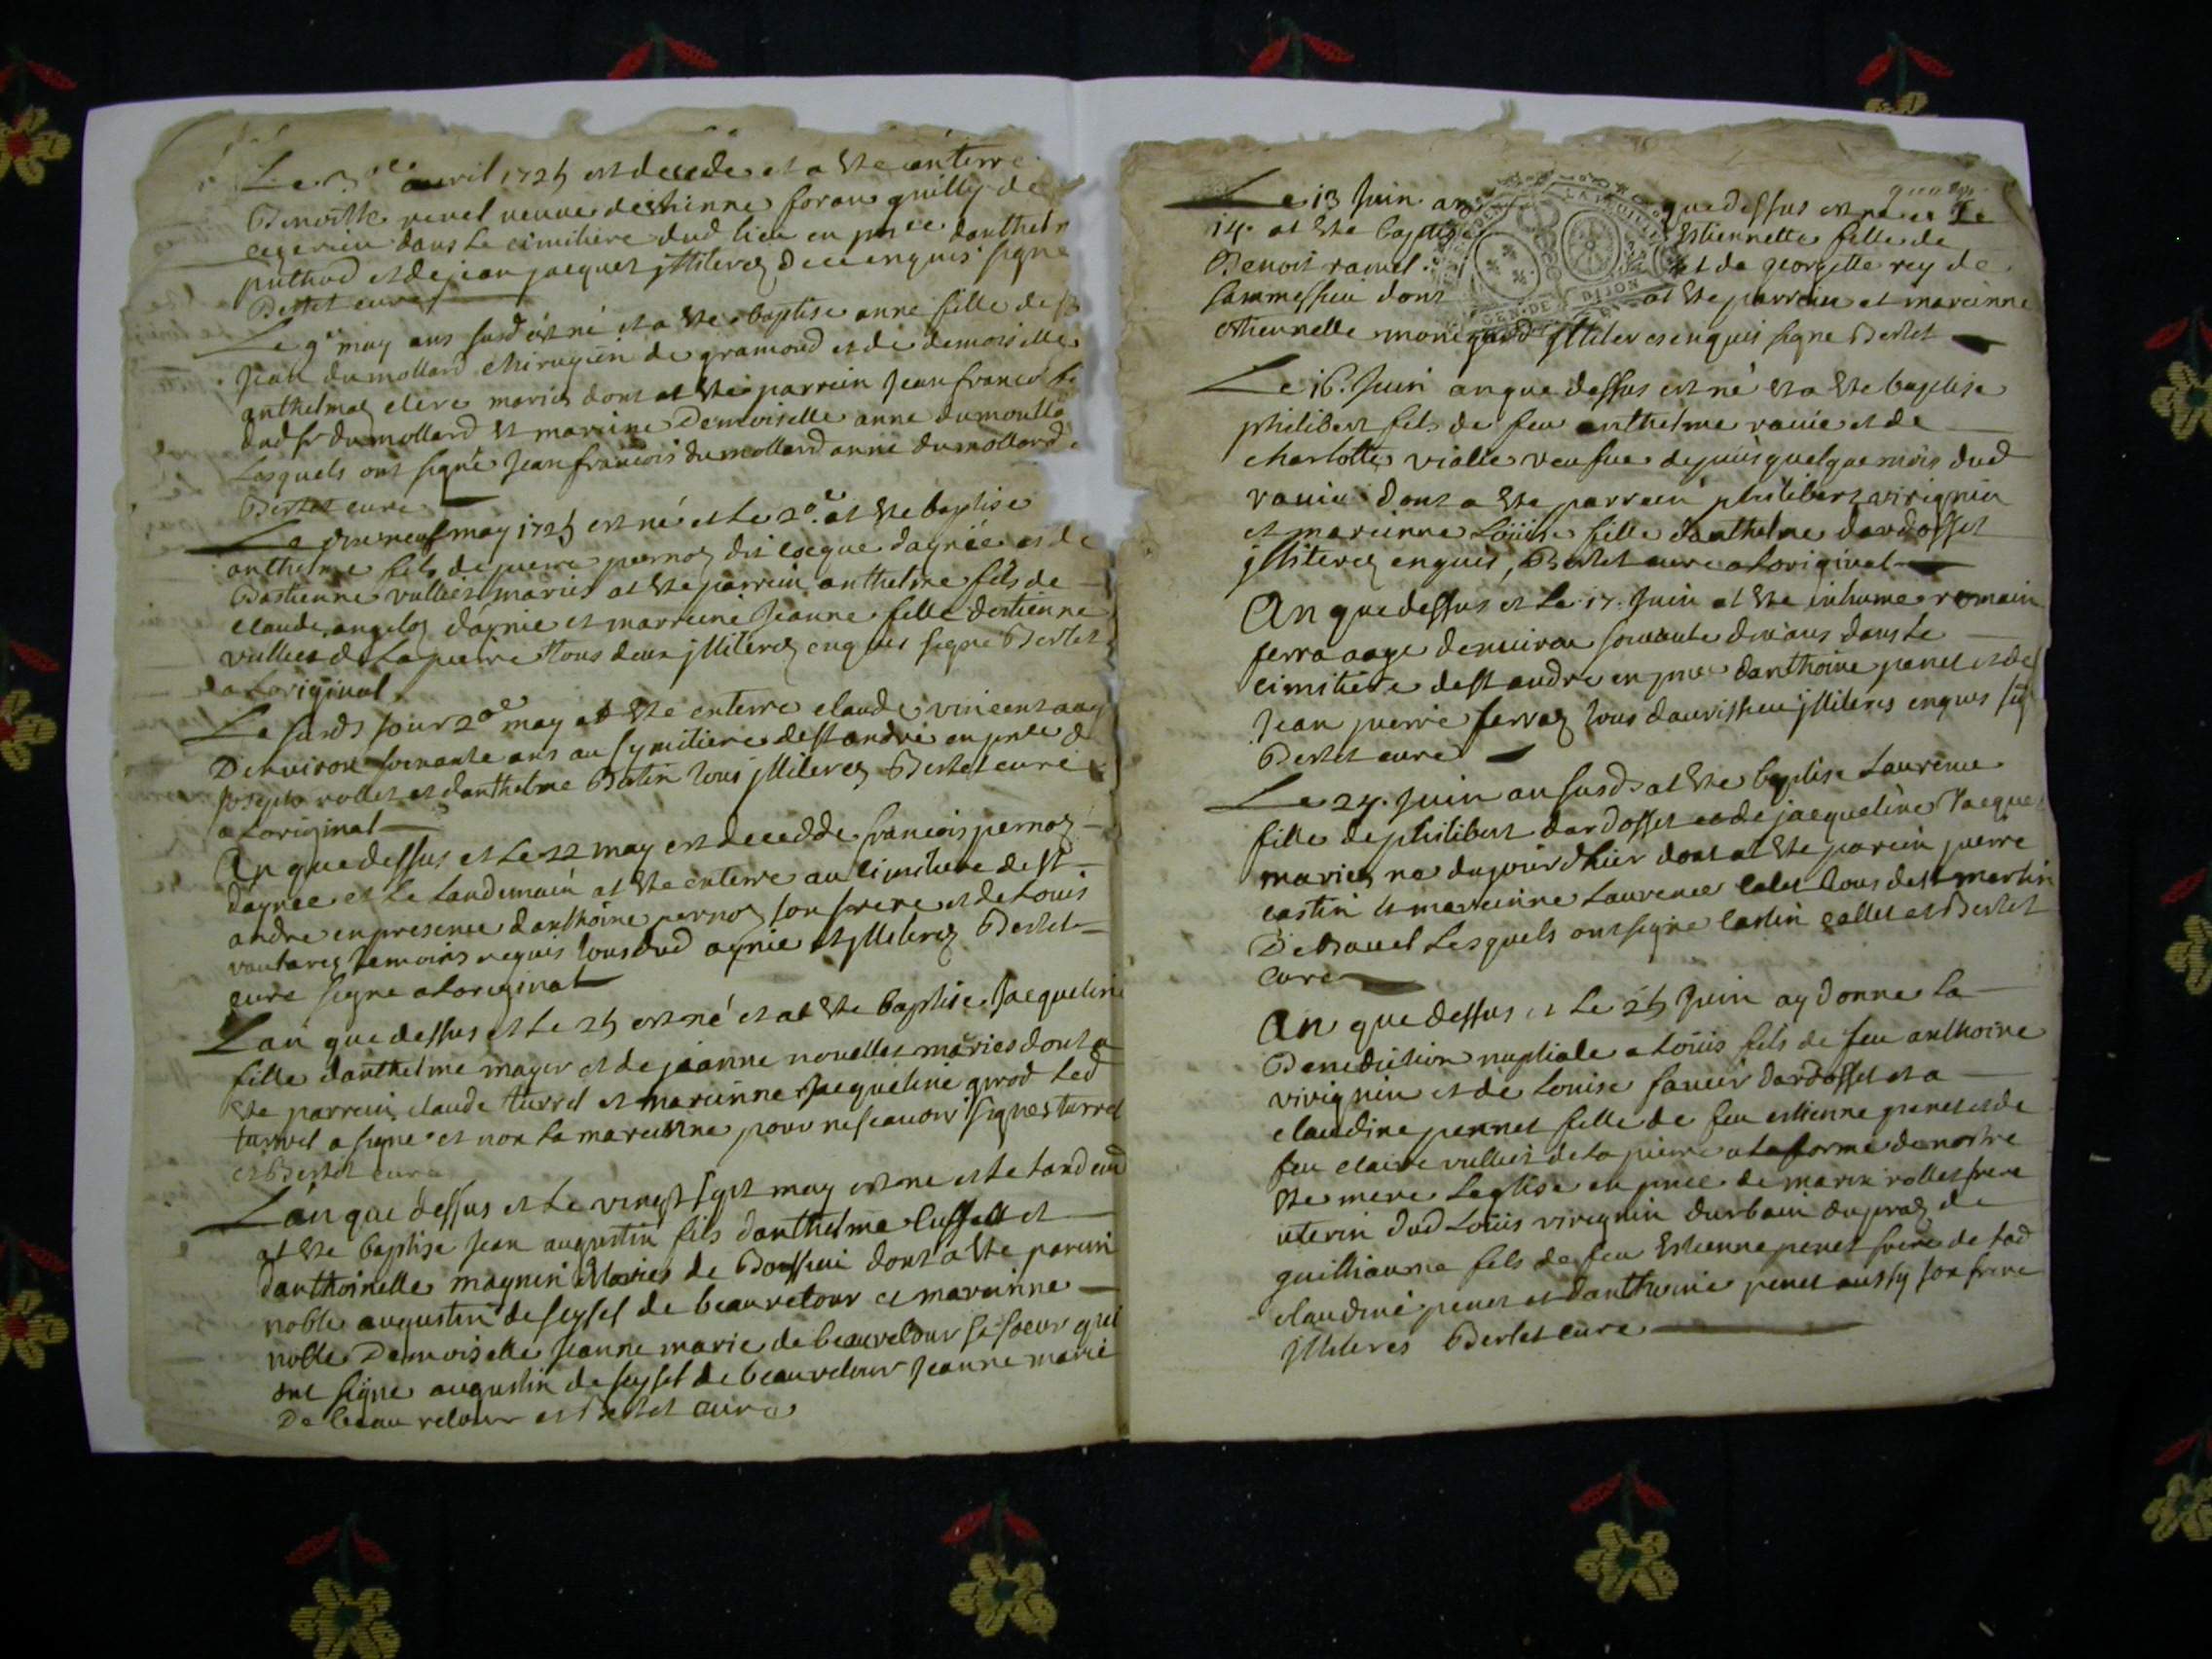 avril 1725 est decede et a este enterre
Benoitte revel veuve destienne foran
dans le cimitiere dud lieu en pnce danthel
puthod et de jean jacques jlliterez de ce enquis signe
Bertet curé
Le 9e may ans susd est né et a este baptise anne fille de
Jean dumollard chirugien de gramond et de demoiselle
anthelmaz clere maries dont at este parrein Jean francois
dud sr dumollard et mareine Demoiselle anne dumolla
Lesquels ont signé Jean francois dumollard anne dumollard
Bertet curé
Le dix neuf may 1725 est né et le 20e at este baptise
anthelme fils de pierre pernoz dit cocque dagniée et de
Bastienne vulliet maries at este parrein anthelme fils de
claude angeloz dagnie et marreine Jeanne fille destienne
vulliet de la pierre tous deux jlliterez enquis signe Bertet
a loriginal
Le susd jour 20e may at este enterre claude vincent aag
Denviron soixante ans au symitiere de st andré en pnce d
Joseph rollet et danthelme Botin tous jlliterez Bertet curé
a loriginal
An que dessus et le 22 may est decedde francois pernoz
dagnee et le landemain at este enterre au cimitiere de st
andre en presence danthoine pernoz son frere et de Louis
vautarez temoins requis tous dud agnie et jlliterez Bertet
cure signe a loriginal
Lan que dessus et le 25 est né et at este baptise Jacqueline
fille danthelme mager et de jeanne novellet maries dont a
este parrein claude turrel et mareinne Jacqueline girod led
turrel a signe et non la mareinne pour ne scauoir signes turrel
et Bertet cure
Lan que dessus et le vingt sept may est ne et le landem
at este baptise Jean augustin fils danthelme cussat et
danthoinette magnin maries de Bossieu dont a este parein
noble augustin de seyssel de beauretour et mareinne
noble Demoiselle Jeanne marie de beauretour sa soeur qui
ont signe augustin de seyssel de beauretour Jeanne marie
De beau retour et Bertet cure
Le 13 Juin an que dessus est ne et le
14. at este baptise Estiennette fille de
Benoit ravuel et de georgette rey de
dont at este parrein et mareinne
estiennette jlliteres enquis signe Bertet
GEN. DE DIJON
Le 16. Juin an que dessus est né et a este baptise
philibert fils de feu anthelme ravie et de
charlotte viallie veufue depuis quelque mois dud
ravie dont a este parrein philibert virignin
et mareinne Loüise fille danthelme dardosset
jlliterez enquis, Bertet cure a loriginal
An que dessus et le 17. Juin at este inhume romain
ferra aage denviron soixante dix ans dans le
cimitiere de st andre en pnce danthoine penet et de
Jean pierre ferraz tous jlliteres enquis sig
Bertet cure
Le 24. Juin an susd. at este baptise Laurence
fille de philibert dardosset et de jacqueline Jacque
mariez ne daujourdhier dont at este parein pierre
castin et mareinne Laurence calet tous de st martin
De bavel Lesquels ont signe castin callet et Bertet
Cure
An que dessus et le 25 Juin ay donne la
Benediction nuptiale a Loüis fils de feu anthoine
virignin et de Louise dardosset et a
claudine pennet fille de feu estienne penet et de
feu claire vulliet de la pierre a la forme de nostre
ste mere Leglise en pnce de marin rollet frere
uterin dud Loüis virignin durbain dupraz de
guilliaume fils de feu Estienne penet frere de lad
claudine penet et danthoine penet aussy son frere
jlliteres Bertet cure